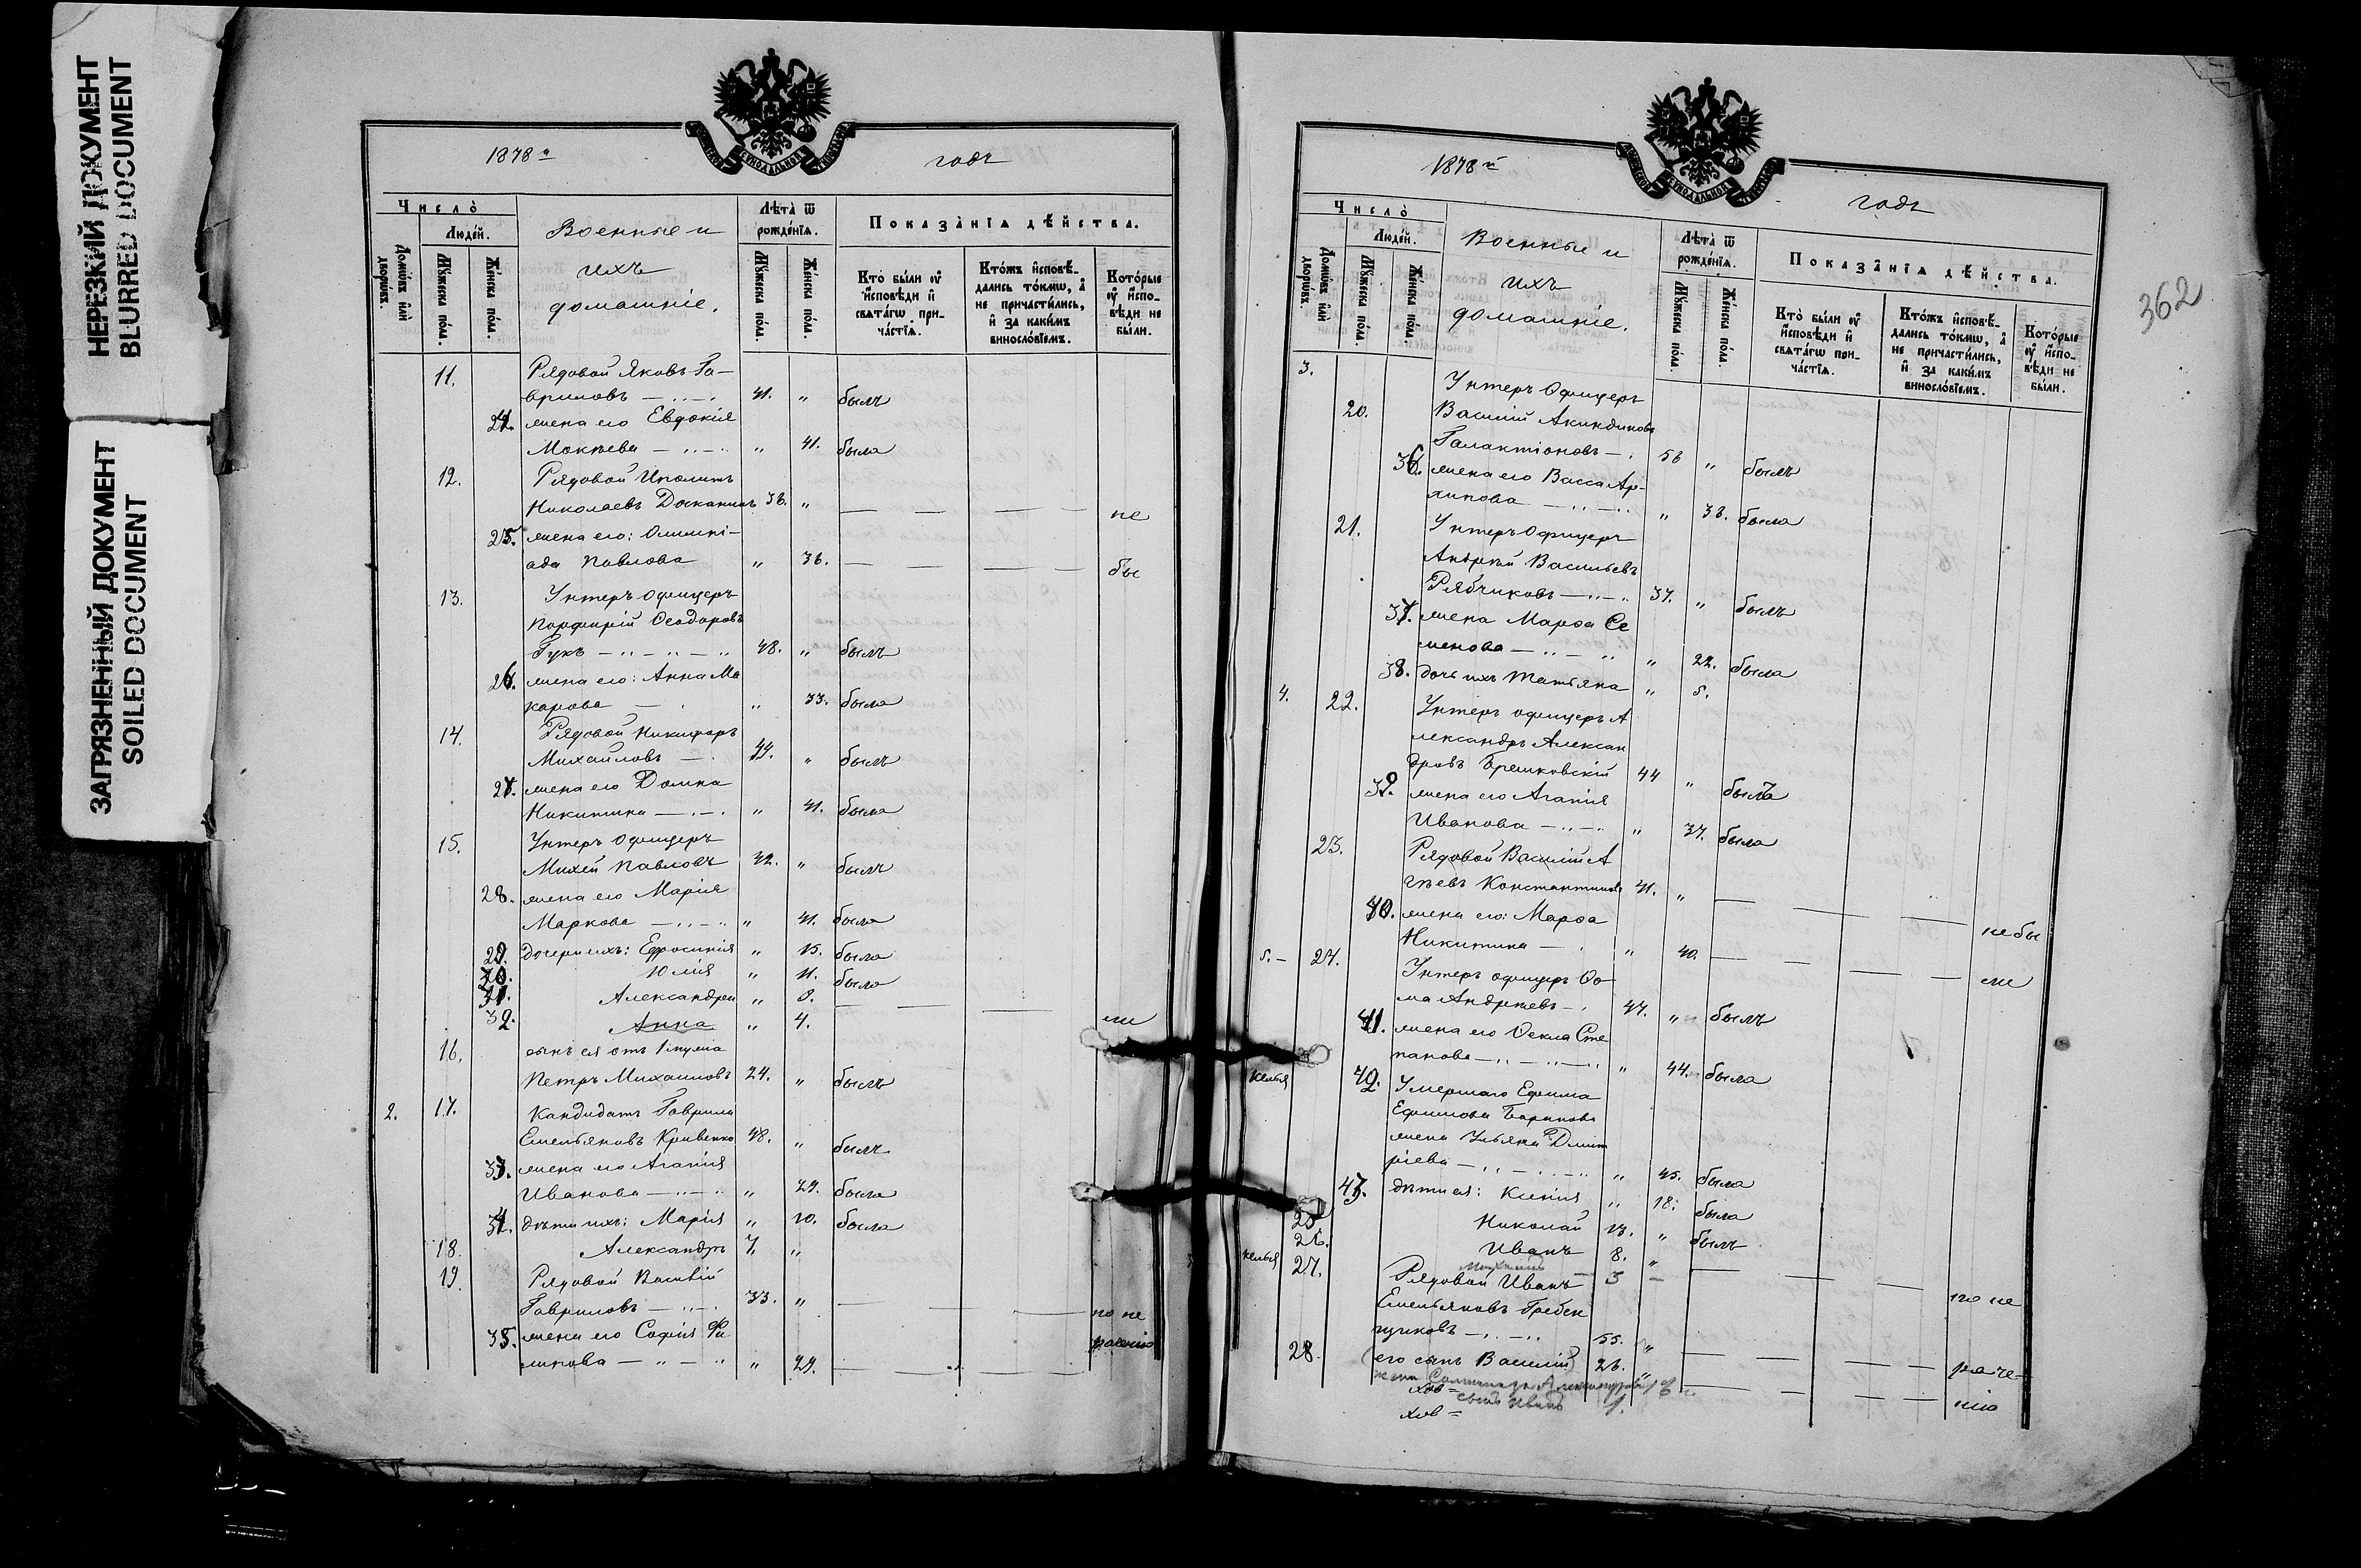 НЕРЕЗКИЙ ДОКУМЕНТ
BLURRED DOCUMENT
ЗАГРЯЗНЕННЫЙ ДОКУМЕНТ
SOILED DOCUMENT
1878 годъ
Число̀
Лѣта̀ ѿ рожде́нїѧ.
Показа̂нїѧ дѣ́йства.
Люде́й.
Домѡ́въ и҆лѝ дворѡ́въ.
Мꙋ́жеска по́ла.
Же́нска по́ла.
Военные и
ихъ
домашніе.
Мꙋ́жеска по́ла.
Же́нска по́ла.
Кто̀ бы́ли ᲂу҆ и҆́сповѣди и҆ свѧта́гѡ прича́стїѧ.
Кто́жъ и҆сповѣ́дались то́кмѡ, а҆ не причасти́лись, и҆ за каки́мъ винословїемъ.
Кото́рые ᲂу҆ и҆́сповѣди не бы́ли.
11. Рядовой Яковъ Га-
вриловъ 41. " былъ
24. жена его Евдокія
Мокѣева " 41. была
12. Рядовой Иполитъ
Николаевъ 36. " не
25. жена его: Олимпі-
ада Павлова " 36. бы
13. Унтеръ офицеръ
Порфирій Ѳеодоровъ
Гукъ 48. " былъ
26. жена его: Анна Ма
карова " 33. была
14. Рядовой Никифоръ
Михайловъ 44. " былъ
27. жена его Домна
Никитина " 41. была
15. Унтеръ офицеръ
Михей Павловъ 42. " былъ
28. жена его Марія
Маркова " 41. была
29. дочери ихъ: Ефросинія " 15. была
30. Юлія " 11. была
31. Александра " 9.
32. Анна " 4. ли
16. сынъ ея отъ 1 мужа
Петръ Михаиловъ 24. " былъ
2. 17. Кандидатъ Гаврилъ
Емельяновъ Кривенко 48. " былъ
33. жена его Агапія
Иванова " 29. была
34. дѣти ихъ: Марія " 10. была
18. Александръ 7. "
19. Рядовой Василій
Гавриловъ 33. " по не
35. жена его Софія Фи радѣнію
липова " 29.
1878й годъ
362
Число̀
Лѣта̀ ѿ рожде́нїѧ.
Показа̂нїѧ дѣ́йства.
Люде́й.
Домѡ́въ и҆лѝ дворѡ́въ.
Мꙋ́жеска по́ла.
Же́нска по́ла.
Военные и
ихъ
домашніе.
Мꙋ́жеска по́ла.
Же́нска по́ла.
Кто̀ бы́ли ᲂу҆ и҆́сповѣди и҆ свѧта́гѡ прича́стїѧ.
Кто́жъ и҆сповѣ́дались то́кмѡ, а҆ не причасти́лись, и҆ за каки́мъ винословїемъ.
Кото́рые ᲂу҆ и҆́сповѣди не бы́ли.
3. Унтеръ Офицеръ
20. Василій Акиндиновъ
Галактіоновъ 56 " былъ
36. жена его Васса Ар-
хипова " 38. была
21. Унтеръ Офицеръ
Андрей Васильевъ
Рябчиковъ 37. " былъ
37. жена Марѳа Се
менова " 22. была
38. дочь ихъ Татьяна " 5.
4. 22. Унтеръ офицеръ А
лександръ Алексан
дровъ Брешковскій 44 " былъ
39. жена его Агапія
Иванова " 37. была
23. Рядовой Василій А
гѣевъ Константинов 41. " не бы
40. жена его: Марѳа
Никитина " 40. ли
5. 24. Унтеръ офицеръ Ѳо
ма Андреевъ 47. " былъ
41. жена его Ѳекла Сте
панова " 44. была
келья 42. Умершаго Ефима
Ефимова Баранова
жена Ульяна Дмит
ріева " 45. была
43. дѣти ея: Ксенія " 18. была
25. Николай 13. " былъ
26. Иванъ 8. "
келья 27. Рядовой Иванъ по не
Емельяновъ Гребен
щиковъ 55. " раче-
28. (его сынъ Василій) 26. " нію
жена Александрова
сынъ Иванъ 1.